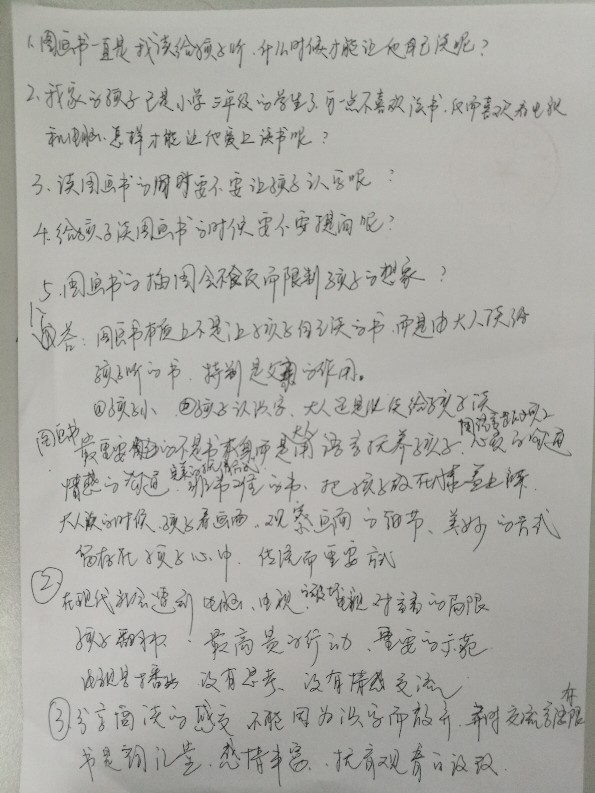 1.图画书一直是我读给孩子听.什么时候才能让他自己读呢?
2.我家的孩子已是小学三年级的学生了,可一点不喜欢读书.反而喜欢看电视
和电脑.怎样才能让他爱上读书呢?
3.读图画书的同时要不要让孩子认字呢?
4.给孩子读图画书的时候要不要提问呢?
5.图画书的插图会不会反而限制孩子的想象?
答:图画书本质上不是让孩子自己读的书.而是由大人读给
孩子听的书.特别是父亲的作用。
①孩子小 ②孩子认识字,大人还是应该给孩子读
图画书最重要的不是书本身而是用大人语言抚养孩子.
情感的沟通 把孩子放在膝盖上
大人读的时候,孩子看画面。观察画面的细节、美妙的方式
留存在孩子心中,
②在现代社会遇到电脑、电视
最高贵的行动,重要的示范
电视是 没有思考、没有情感交流
③.分享阅读的感受 不能因为识字而放弃.
书是词汇 感情丰富.